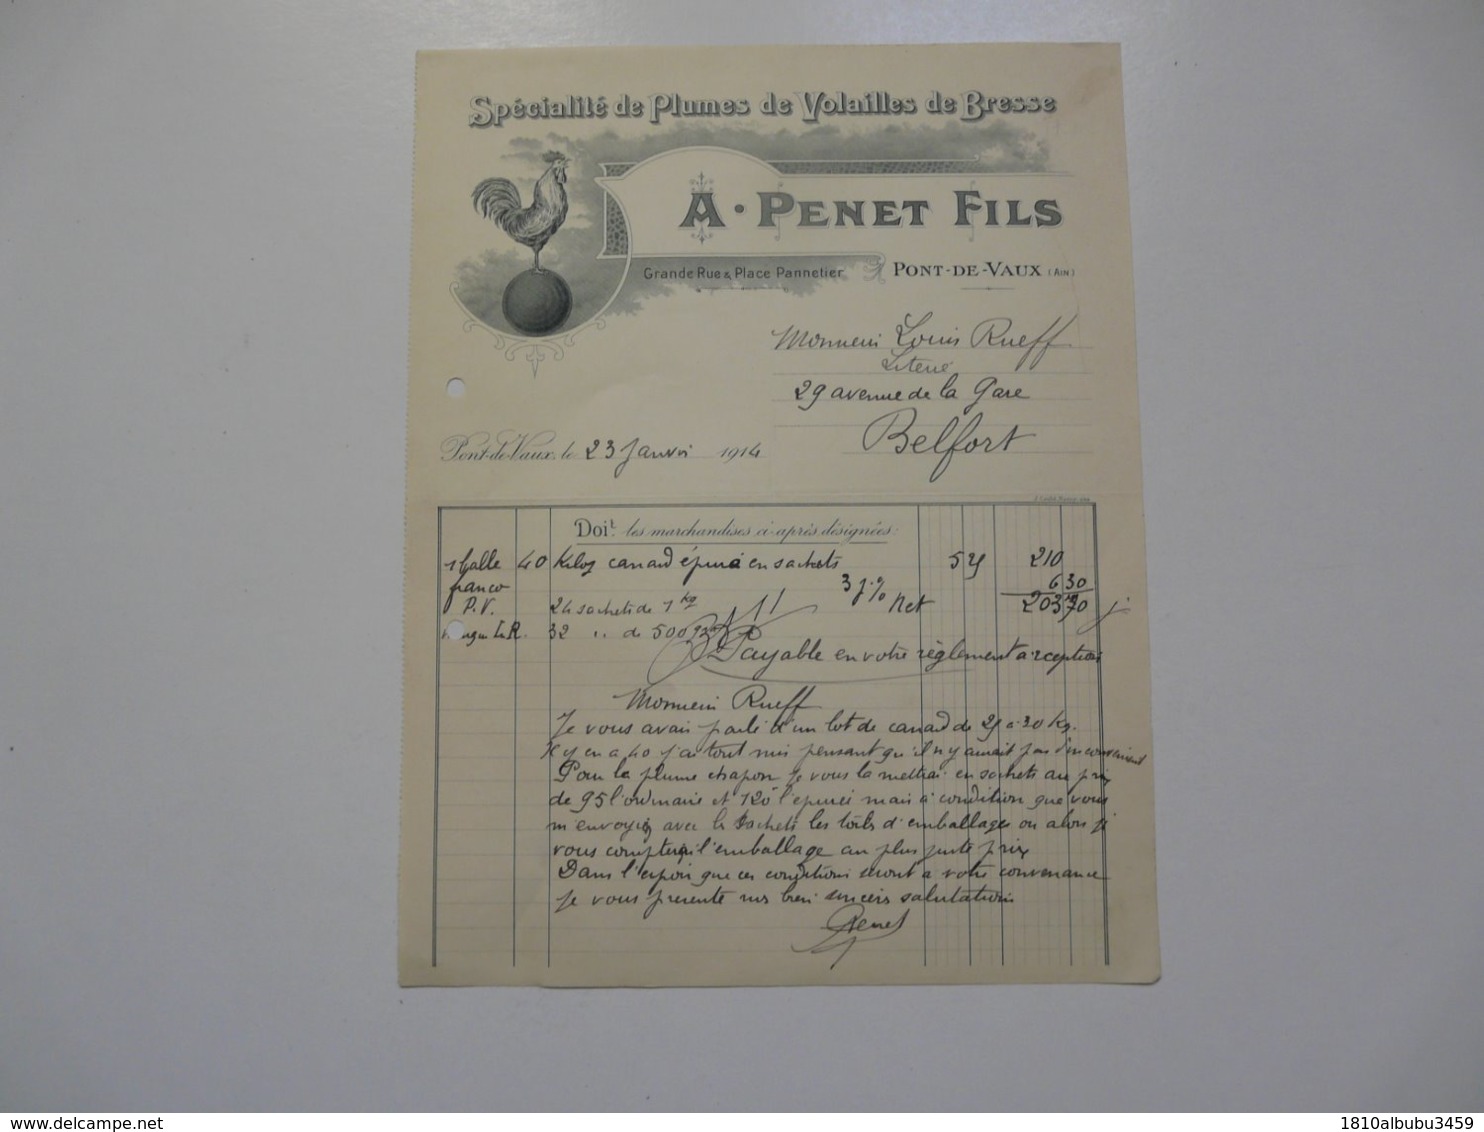 Spécialité de Plumes de Volailles de Bresse
A. PENET FILS
Grande Rue & Place Pannetier
PONT-DE-VAUX (AIN)
Monsieur Louis Rueff
Literie
29 avenue de la Gare
Belfort
Pont-de-Vaux, le 23 Janvier 1914
Doit les marchandises ci-après désignées:
1 balle 40 Kilos canard épuré en sachets 5 25 210
franco 3% 6 30
P.V. 24 sachets de 1 kg Net 203 70
32 " de 500 gr
Payable en votre règlement à réception
Monsieur Rueff
Je vous avais parlé d'un lot de canard de 25 à 30 Kg.
Il y en a 40 j'ai tout mis pensant qu'il n'y aurait pas d'inconvénient
Pour la plume chapon je vous la mettrai en sachets au prix
de 95 l'ordinaire et 120 l'épurée mais à condition que vous
m'envoyiez avec les sachets les toiles d'emballages ou alors je
vous compterai l'emballage au plus juste prix
Dans l'espoir que ces conditions seront à votre convenance
je vous présente mes bien sincères salutations
Penet
delcampe.net
1810albubu3459